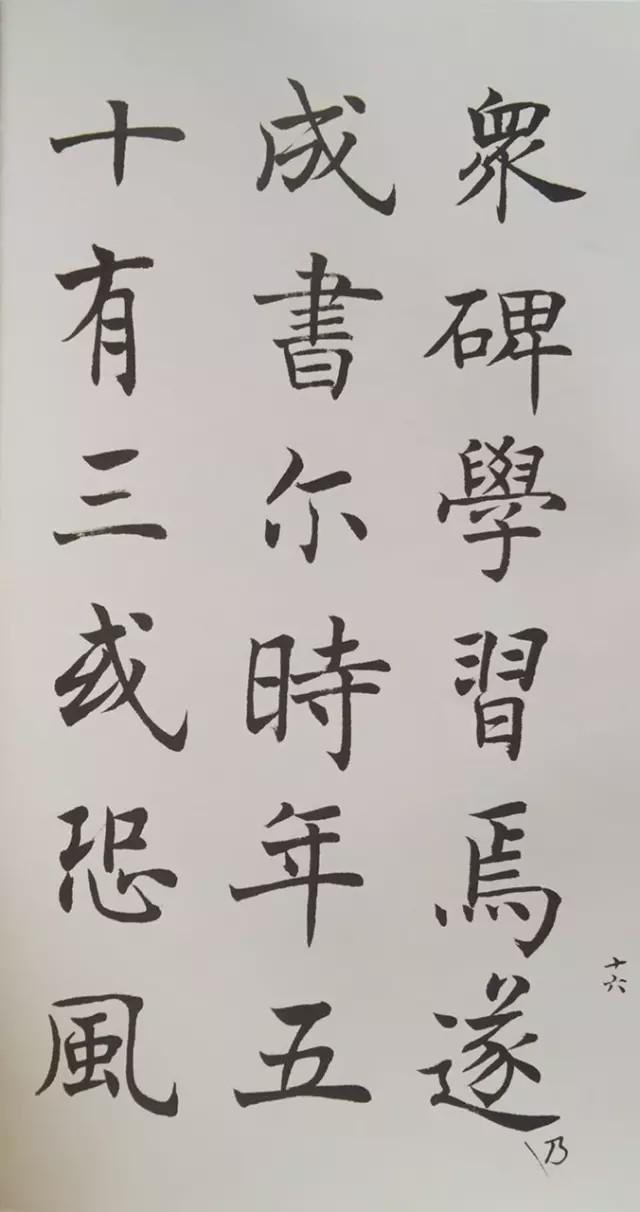 衆碑學習焉遂
成書尔時年五
十有三或恐風
十六
乃